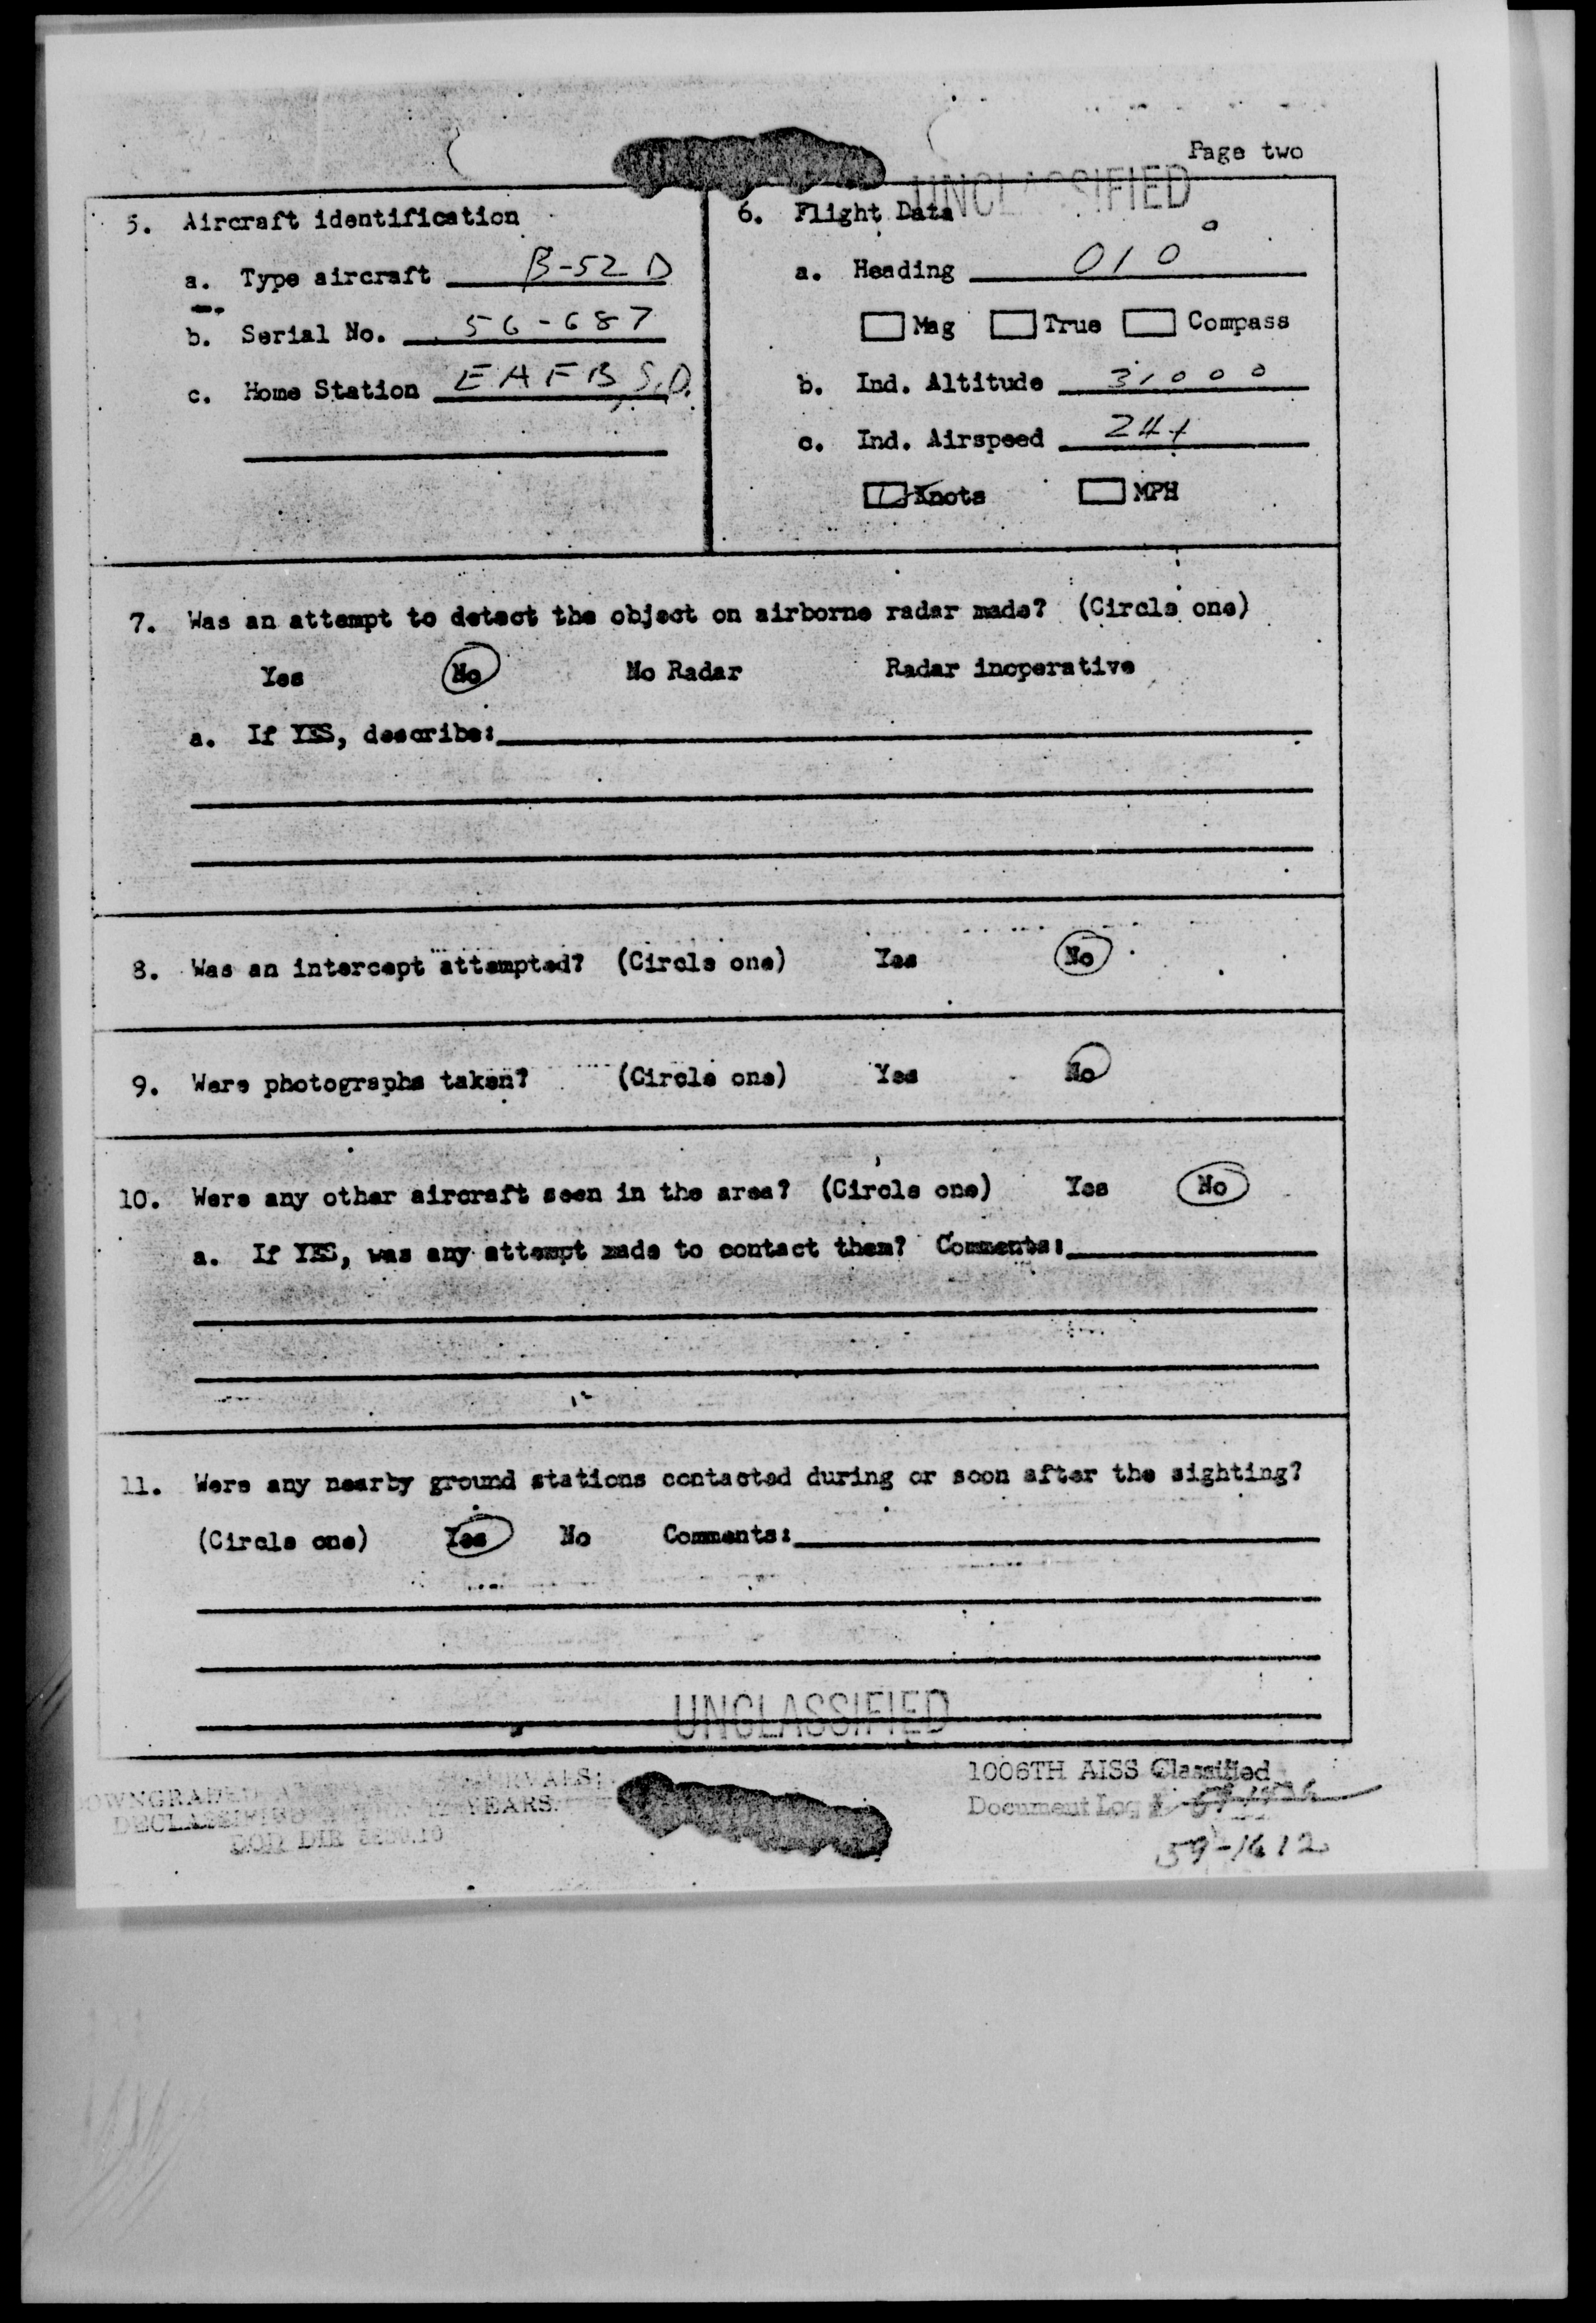 Page two
UNCLASSIFIED
5. Aircraft identification
a. Type aircraft B-52 D
b. Serial No. 56-687
c. Home Station EAFB S.D.
6. Flight Data
a. Heading 010°
Mag True Compass
b. Ind. Altitude 31000
c. Ind. Airspeed 241
Knots MPH
7. Was an attempt to detect the object on airborne radar made? (Circle one)
Yes No No Radar Radar inoperative
a. If YES, describe:
8. Was an intercept attempted? (Circle one) Yes No
9. Were photographs taken? (Circle one) Yes No
10. Were any other aircraft seen in the area? (Circle one) Yes No
a. If YES, was any attempt made to contact them? Comments:
11. Were any nearby ground stations contacted during or soon after the sighting?
(Circle one) Yes No Comments:
UNCLASSIFIED
1006TH AISS Classified
Document Log #
59-1612
INTERVALS;
DECLASSIFIED 12 YEARS.
DOD DIR 5200.10